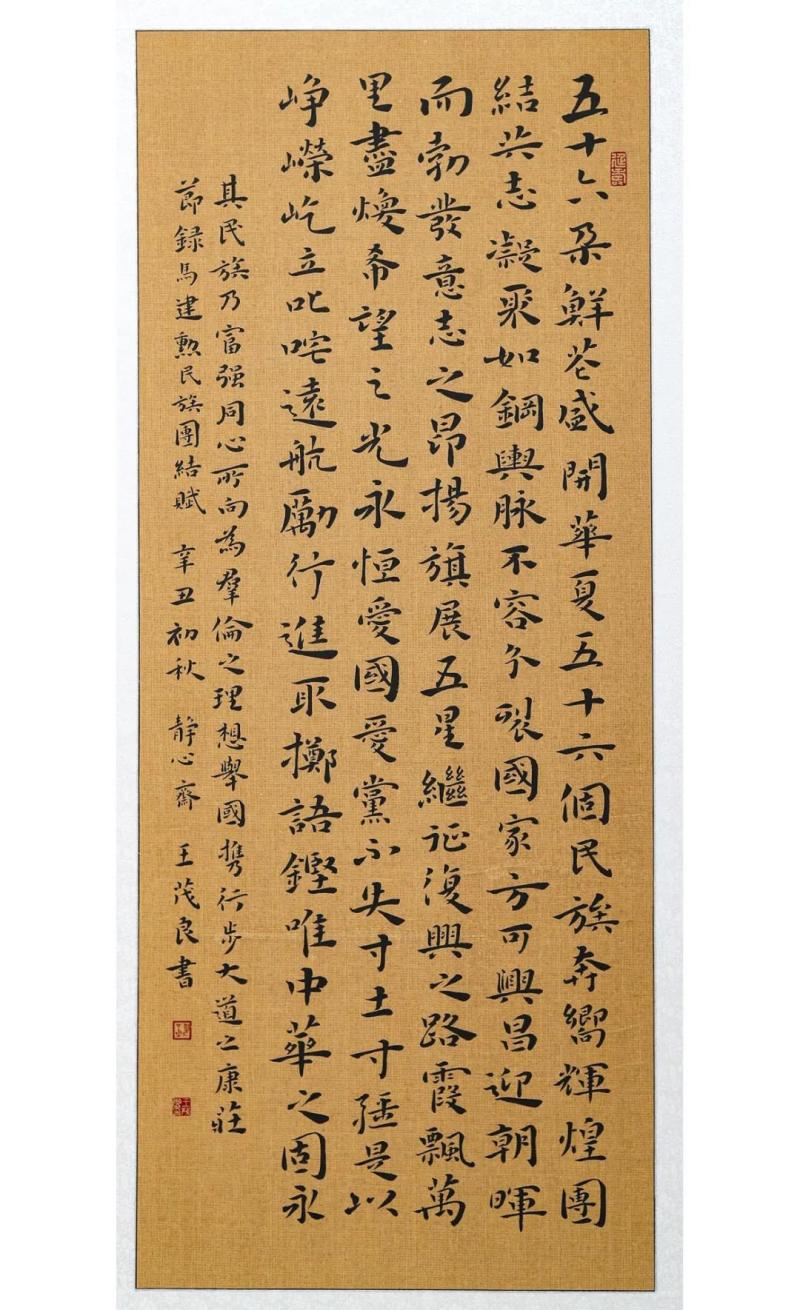 五十六朵鮮花盛開華夏五十六個民族奔嚮輝煌團
結共志凝聚如鋼輿脉不容分裂國家方可興昌迎朝暉
而勃發意志之昂揚旗展五星繼征復興之路霞飄萬
里盡煥希望之光永恒愛國愛黨不失寸土寸疆是以
峥嶸屹立叱咤遠航勵行進取擲語鏗唯中華之固永
其民族乃富强同心所向為羣倫之理想舉國攜行步大道之康莊
節録馬建勲民族團結賦 辛丑初秋 靜心齋 王茂良書